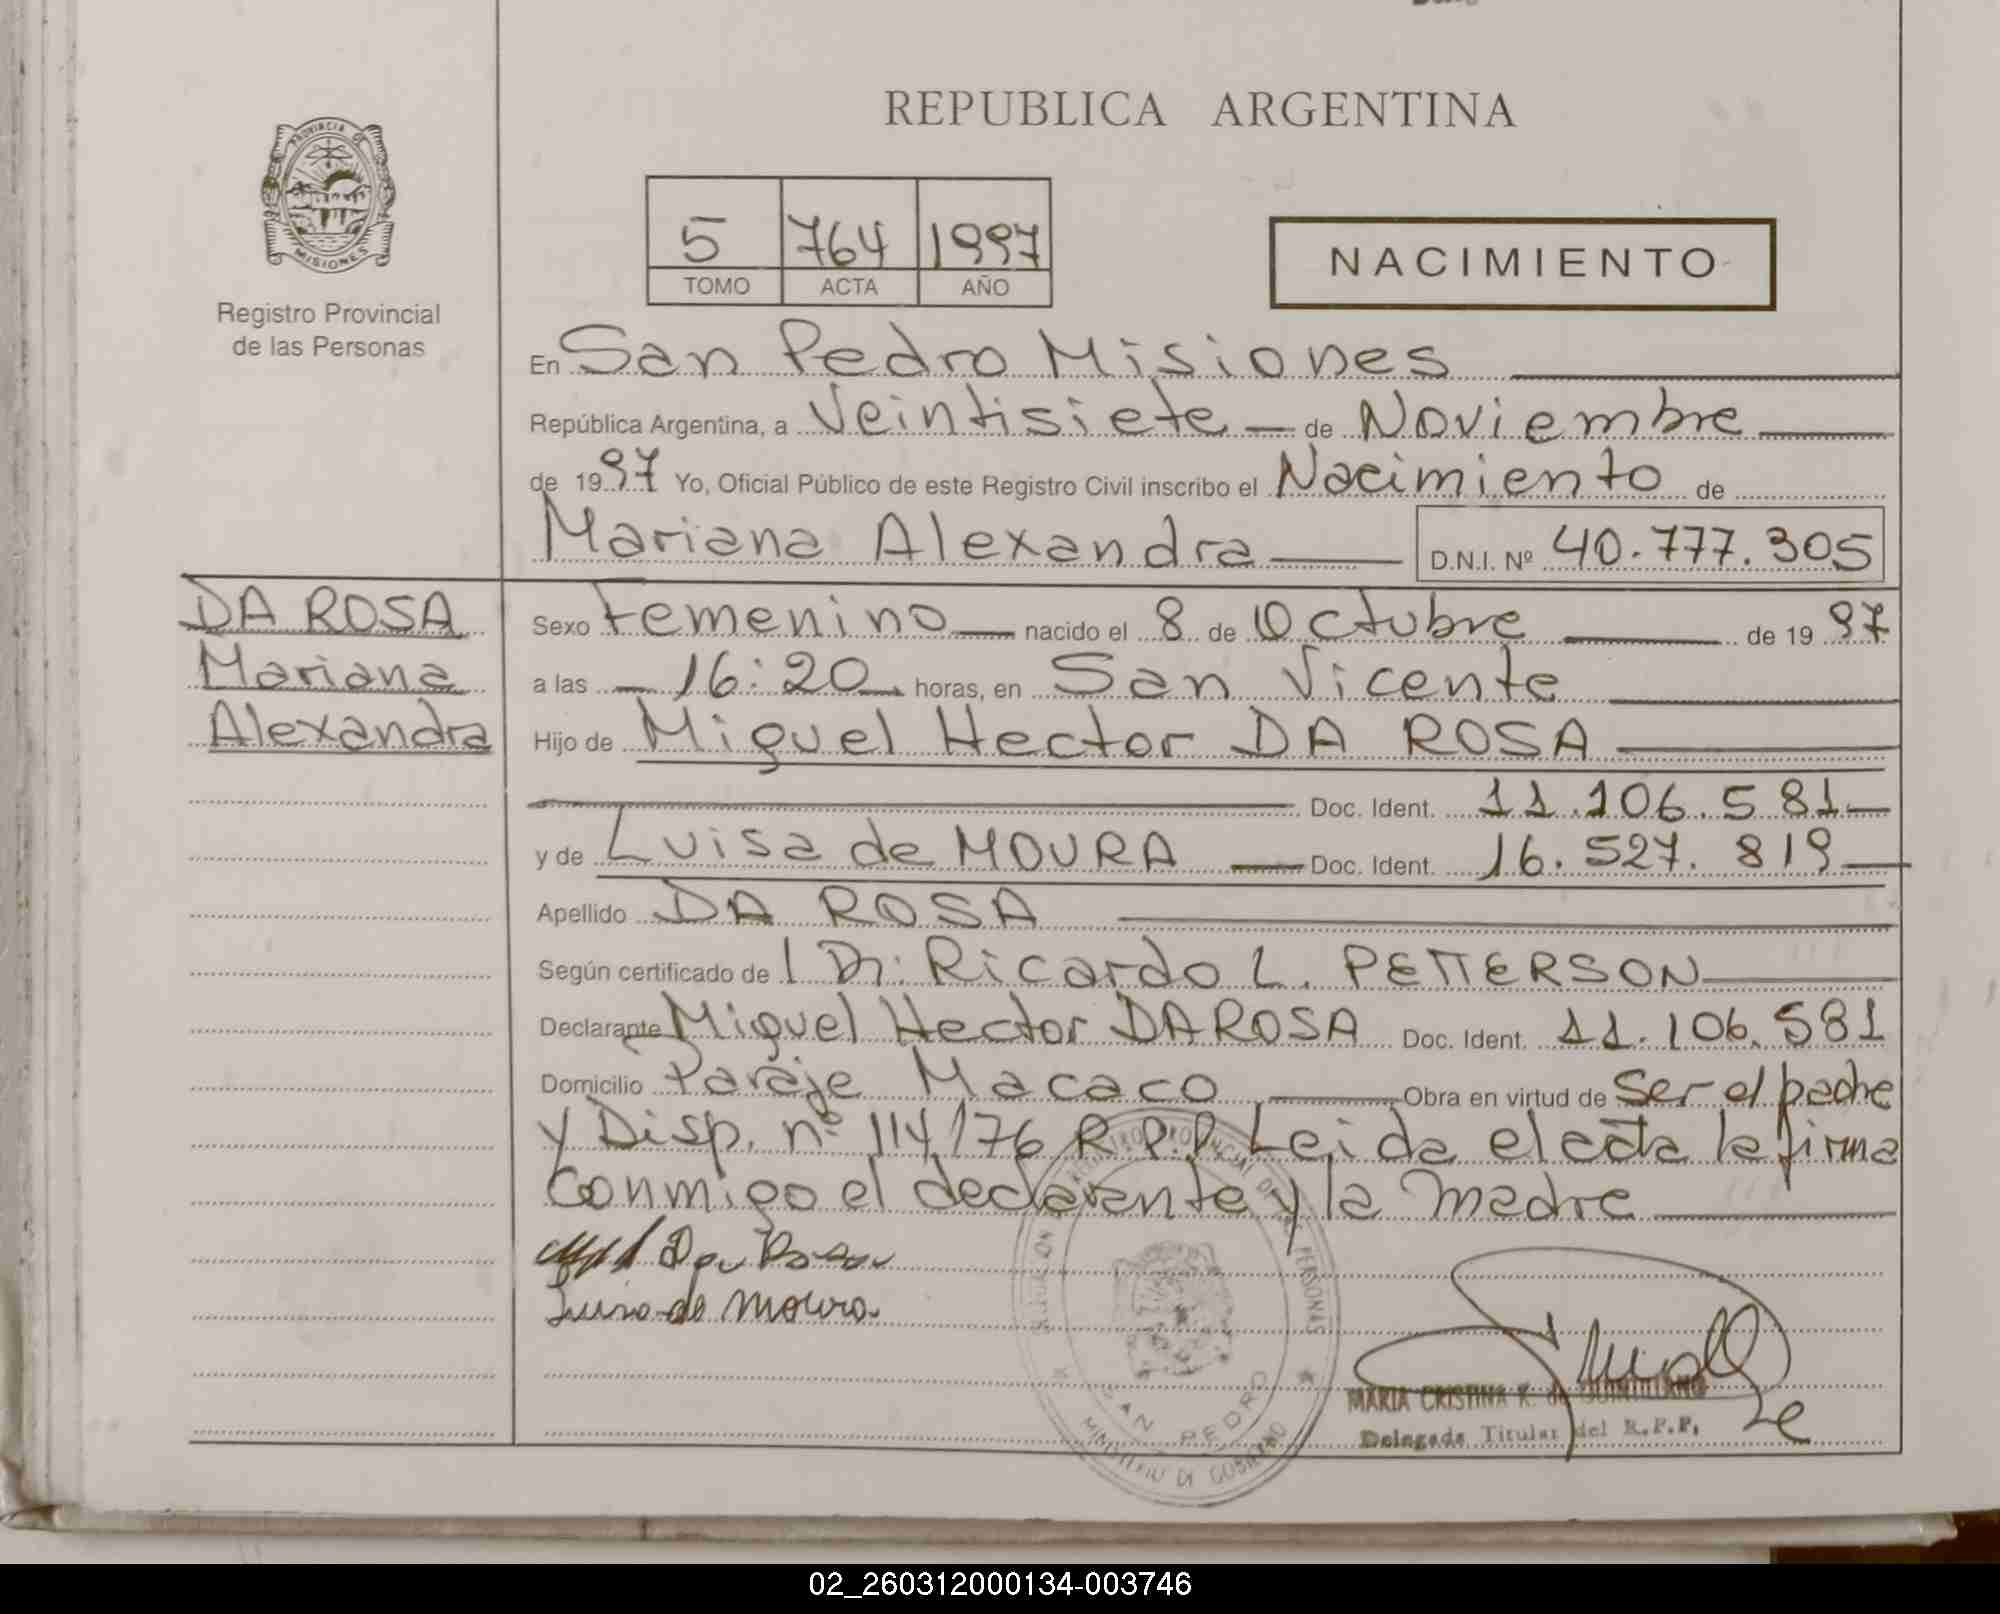 REPUBLICA ARGENTINA
PROVINCIA DE
MISIONES
Registro Provincial
de las Personas
5 764 1997
TOMO ACTA AÑO
NACIMIENTO
En San Pedro Misiones
República Argentina, a Veintisiete de Noviembre
de 1997 Yo, Oficial Público de este Registro Civil inscribo el Nacimiento de
Mariana Alexandra D.N.I. Nº 40.777.305
DA ROSA
Mariana
Alexandra
Sexo Femenino nacido el 8 de Octubre de 1997
a las 16:20 horas, en San Vicente
Hijo de Miguel Hector DA ROSA
Doc. Ident. 11.106.581
y de Luisa de MOURA Doc. Ident. 16.527.819
Apellido DA ROSA
Según certificado de l Dr: Ricardo L. PETTERSON
Declarante Miguel Hector DA ROSA Doc. Ident. 11.106.581
Domicilio Paraje Macaco Obra en virtud de ser el padre
y Disp. nº 114/76 R.P.P. Leida el acta la firma
conmigo el declarante y la madre
Da Rosa
Luisa de Moura
SAN PEDRO
MINISTERIO DE GOBIERNO
MARIA CRISTINA R. de
Delegada Titular del R.P.P.
02_260312000134-003746